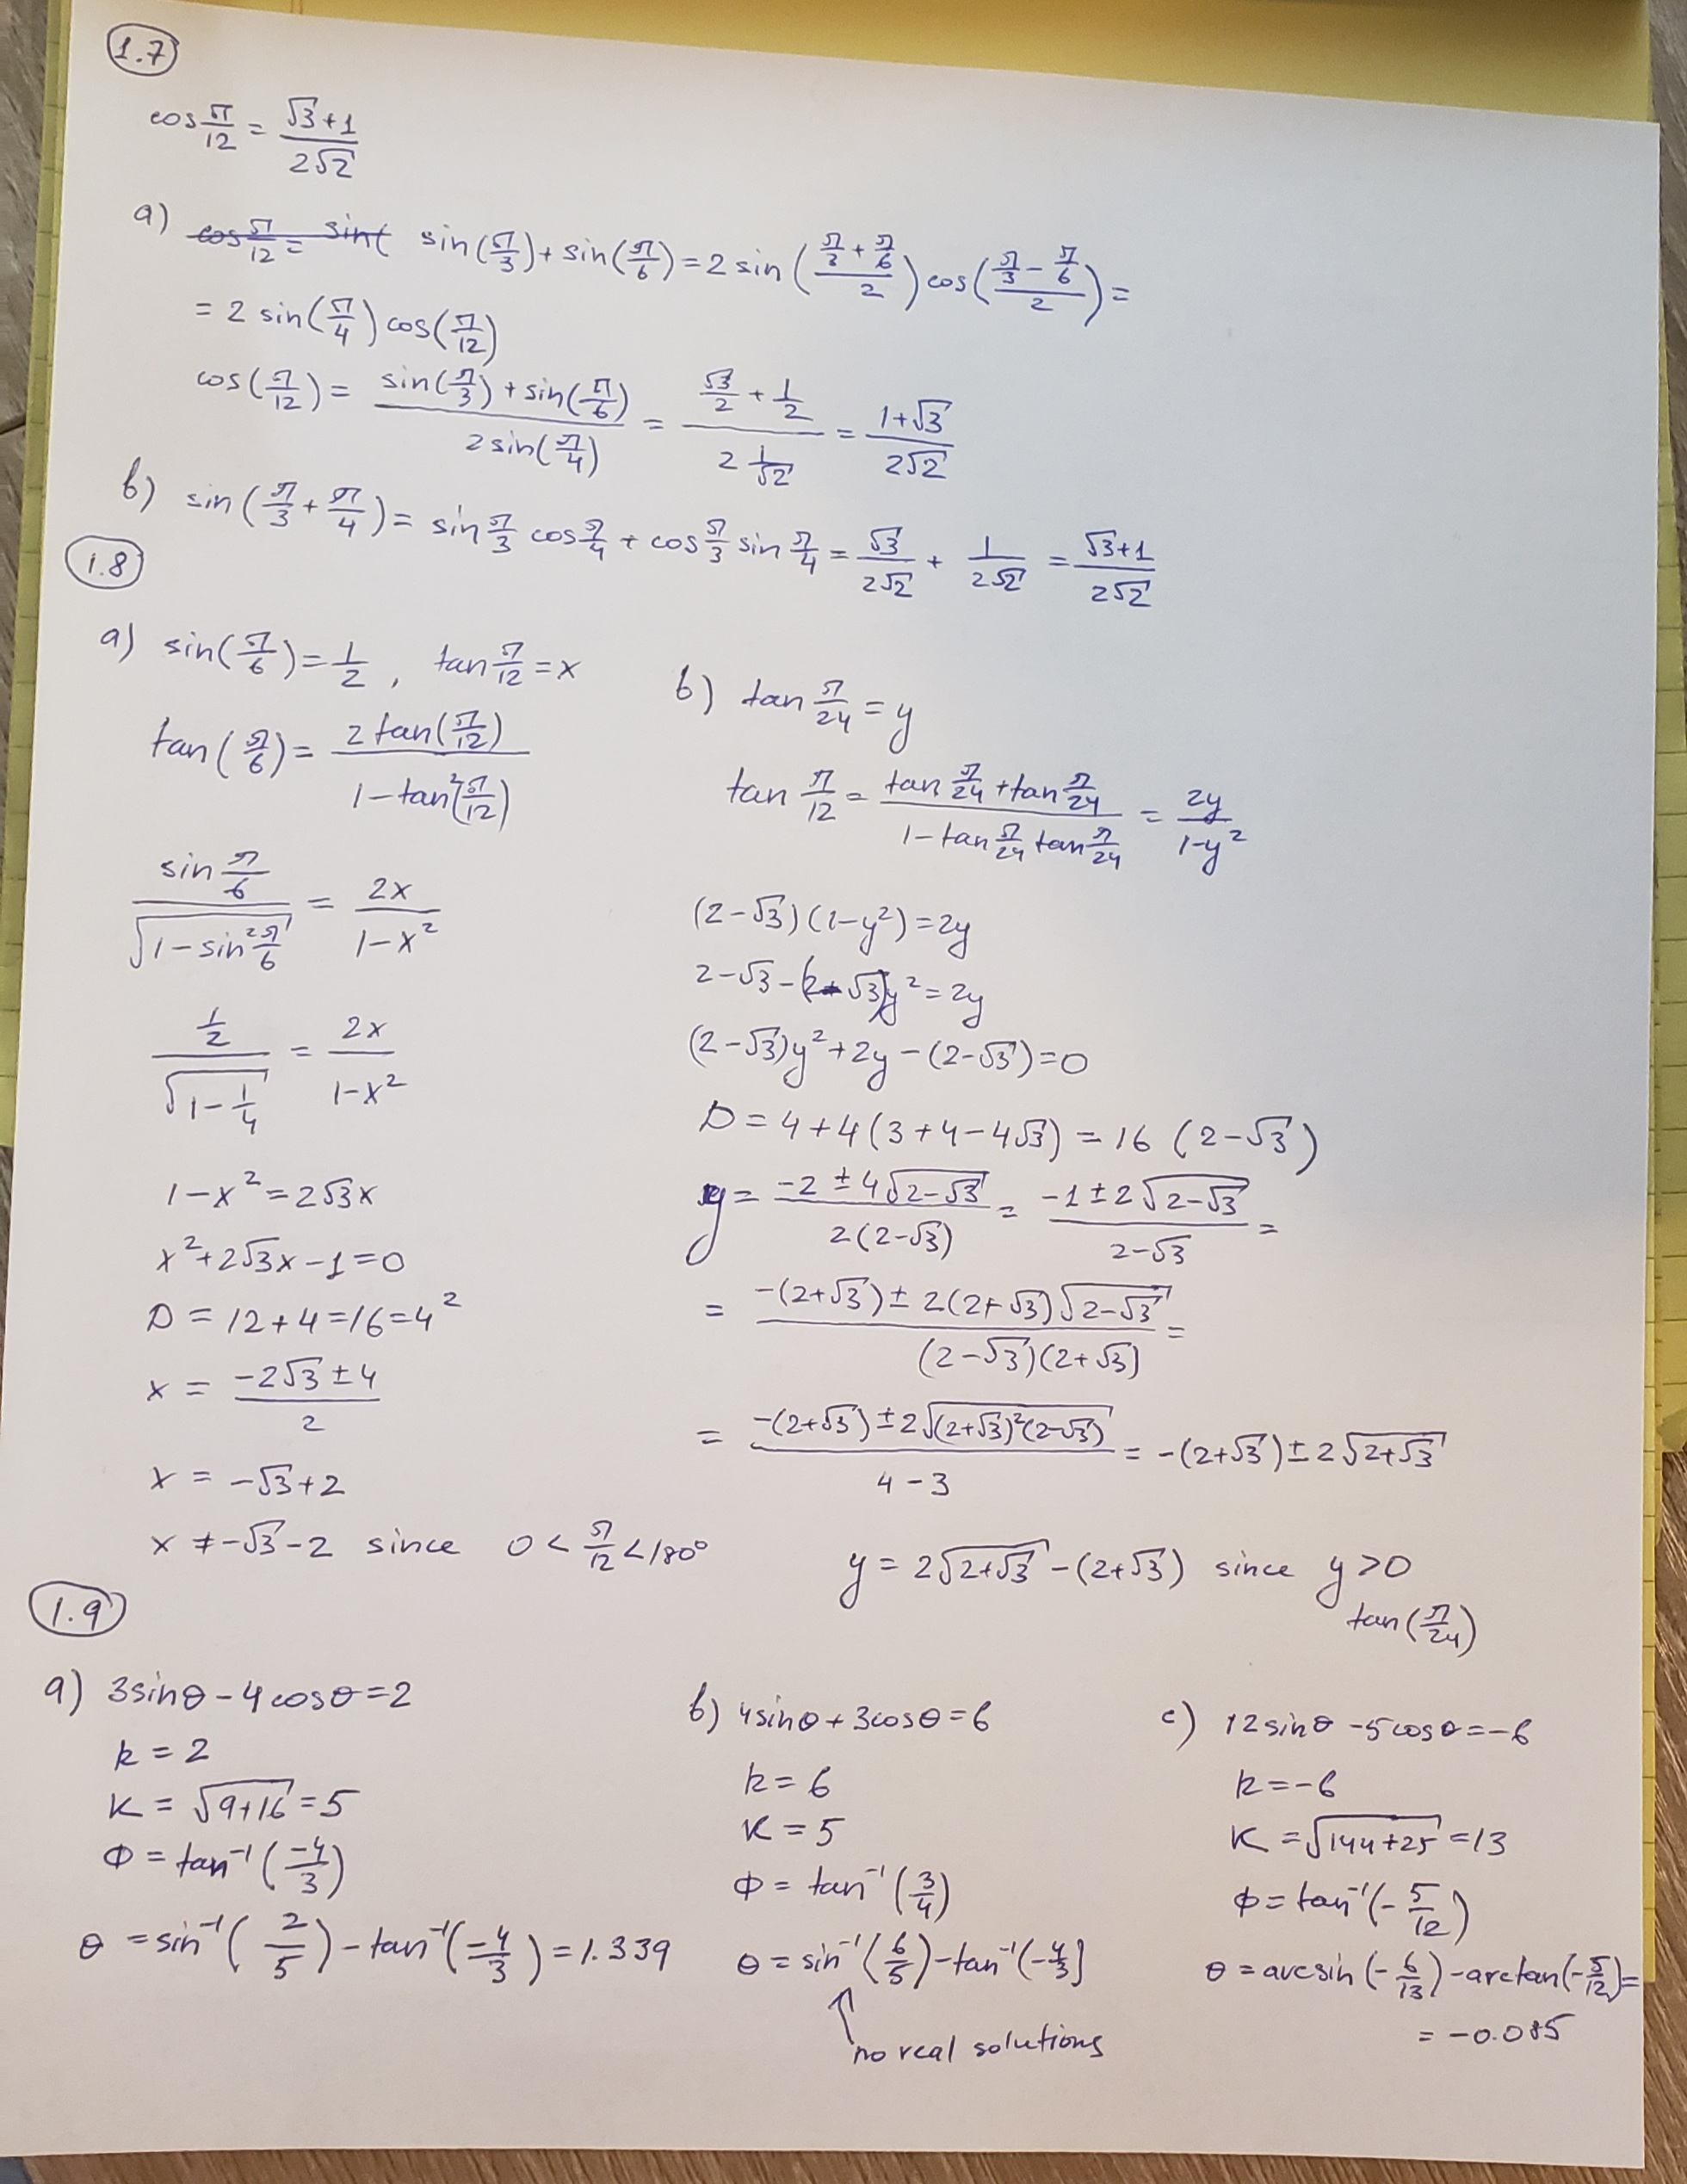 1.7
cos π/12 = (√3+1)/(2√2)
a) cos π/12 = sin( sin(π/3) + sin(π/6) = 2 sin((π/3 + π/6)/2) cos((π/3 − π/6)/2) =
= 2 sin(π/4) cos(π/12)
cos(π/12) = (sin(π/3) + sin(π/6))/(2 sin(π/4)) = (√3/2 + 1/2)/(2 1/√2) = (1+√3)/(2√2)
b) sin(π/3 + π/4) = sin π/3 cos π/4 + cos π/3 sin π/4 = √3/(2√2) + 1/(2√2) = (√3+1)/(2√2)
1.8
a) sin(π/6) = 1/2 , tan π/12 = x
tan(π/6) = 2 tan(π/12)/(1 − tan²(π/12))
sin π/6 / √(1 − sin² π/6) = 2x/(1−x²)
(1/2)/√(1 − 1/4) = 2x/(1−x²)
1−x² = 2√3x
x² + 2√3x − 1 = 0
D = 12+4 = 16 = 4²
x = (−2√3 ± 4)/2
x = −√3+2
x ≠ −√3−2 since 0 < π/12 < 180°
b) tan π/24 = y
tan π/12 = (tan π/24 + tan π/24)/(1 − tan π/24 tan π/24) = 2y/(1−y²)
(2−√3)(1−y²) = 2y
2−√3 − (2−√3)y² = 2y
(2−√3)y² + 2y − (2−√3) = 0
D = 4 + 4(3+4−4√3) = 16 (2−√3)
y = (−2 ± 4√(2−√3))/(2(2−√3)) = (−1 ± 2√(2−√3))/(2−√3) =
= (−(2+√3) ± 2(2+√3)√(2−√3))/((2−√3)(2+√3)) =
= (−(2+√3) ± 2√((2+√3)²(2−√3)))/(4−3) = −(2+√3) ± 2√(2+√3)
y = 2√(2+√3) − (2+√3) since y > 0
tan(π/24)
1.9
a) 3sinθ − 4cosθ = 2
k = 2
K = √(9+16) = 5
Φ = tan⁻¹(−4/3)
θ = sin⁻¹(2/5) − tan⁻¹(−4/3) = 1.339
b) 4sinθ + 3cosθ = 6
k = 6
K = 5
Φ = tan⁻¹(3/4)
θ = sin⁻¹(6/5) − tan⁻¹(−4/3)
no real solutions
c) 12sinθ − 5cosθ = −6
k = −6
K = √(144+25) = 13
Φ = tan⁻¹(−5/12)
θ = arcsin(−6/13) − arctan(−5/12) =
= −0.085